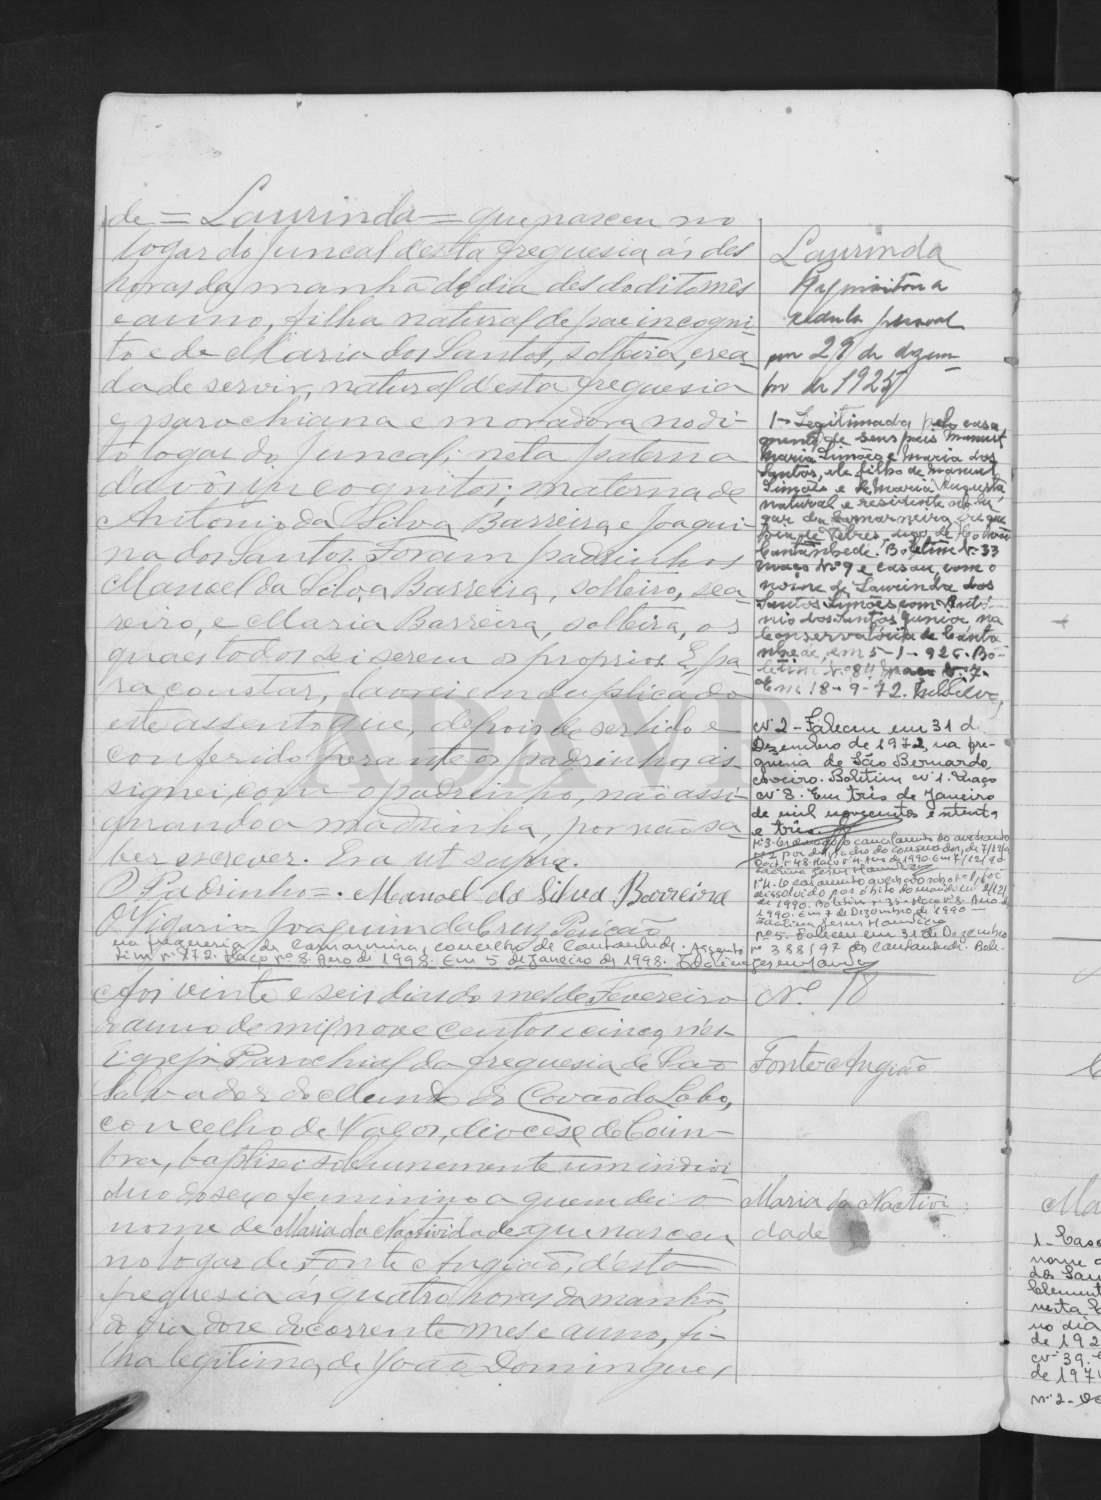 de = Laurinda = que nasceu no
logar do Juncal d'esta freguesia ás dês
horas da manhã do dia dês do dito mês
e anno, filha natural de pae incogni-
to e de Maria dos Santos, solteira, crea-
da de servir, natural d'esta freguesia
e parochiana e moradora no di-
to logar do Juncal; neta paterna
d'avôs incognitos; materna de
Antonio da Silva Barreira e Joaqui-
na dos Santos. Foram padrinhos
Manoel da Silva Barreira, solteiro, sea-
reiro, e Maria Barreira, solteira, os
quaes todos sei serem os proprios. E, pa-
ra constar, lavrei em duplicado
este assento que, depois de ser lido e
conferido perante os padrinhos, as-
signei com o padrinho, não assi-
gnando a madrinha, por não sa-
ber escrever. Era ut supra.
O Padrinho = Manoel da Silva Barreira
O Vigario Joaquim da Cruz
na freguesia de Camarneira, concelho de Cantanhede. Assento
tim nº 872. Maço nº 8. Ano de 1998. Em 5 de Janeiro de 1998.
Laurinda
Requisitou a
cedula pessoal
em 29 de dezem-
bro de 1925
1- Legitimada pelo casa
mento de seus pais Manuel
Maria Simões e Maria dos
Santos, ele filho de Manuel
Simões e de Maria Augusta
natural e residente no lu
gar da Camarneira, fregue
sia de Febres, digo, de Covões
Cantanhede. Boletim Nº 33
maço Nº 9 e casou com o
nome de Laurinda dos
Santos Simões com Antó-
nio dos Santos Junior na
Conservatória de Canta
nhede, em 5-1-926. Bo-
letim Nº 84 maço Nº 7.
Em 18-9-72.
Nº 2 - Faleceu em 31 de
Dezembro de 1972, na fre-
guesia de São Bernardo,
Aveiro. Boletim nº 1. Maço
nº 8. Em três de Janeiro
de mil novecentos e setenta
e três.
nº 3. Ordenado o cancelamento do averbamento
nº 2 por despacho do conservador, de 7/12/90
Maço nº 4. Ano de 1990. Em 7/12/90
nº 4. O casamento averbado sob o nº 1 foi
dissolvido por óbito do marido em
de 1990. Boletim nº 33. Maço nº 8. Ano de
1990. Em 7 de Dezembro de 1990
nº 5. Faleceu em 31 de Dezembro
nº 388/97 de Cantanhede. Bole-
Aos vinte e seis dias do mes de Fevereiro
do anno de mil nove centos e cinco, n'esta
Egreja Parochial da freguesia de São
Salvador do Mundo do Covão do Lobo,
concelho de Vagos, diocese de Coim-
bra, baptisei solemnemente um indivi
duo do sexo feminino a quem dei o
nome de Maria da Nactividade que nasceu
no logar de Fonte Angião, d'esta
freguesia ás quatro horas da manhã,
do dia doze do corrente mes e anno, fi-
lha legitima, de João Domingues,
Nº 18
Fonte Angião
Maria da Nactivi
dade
Ma
1- Caso
nome d
dos San
Clement
nesta C
no dia
de 192
nº 39.
de 197
nº 2-